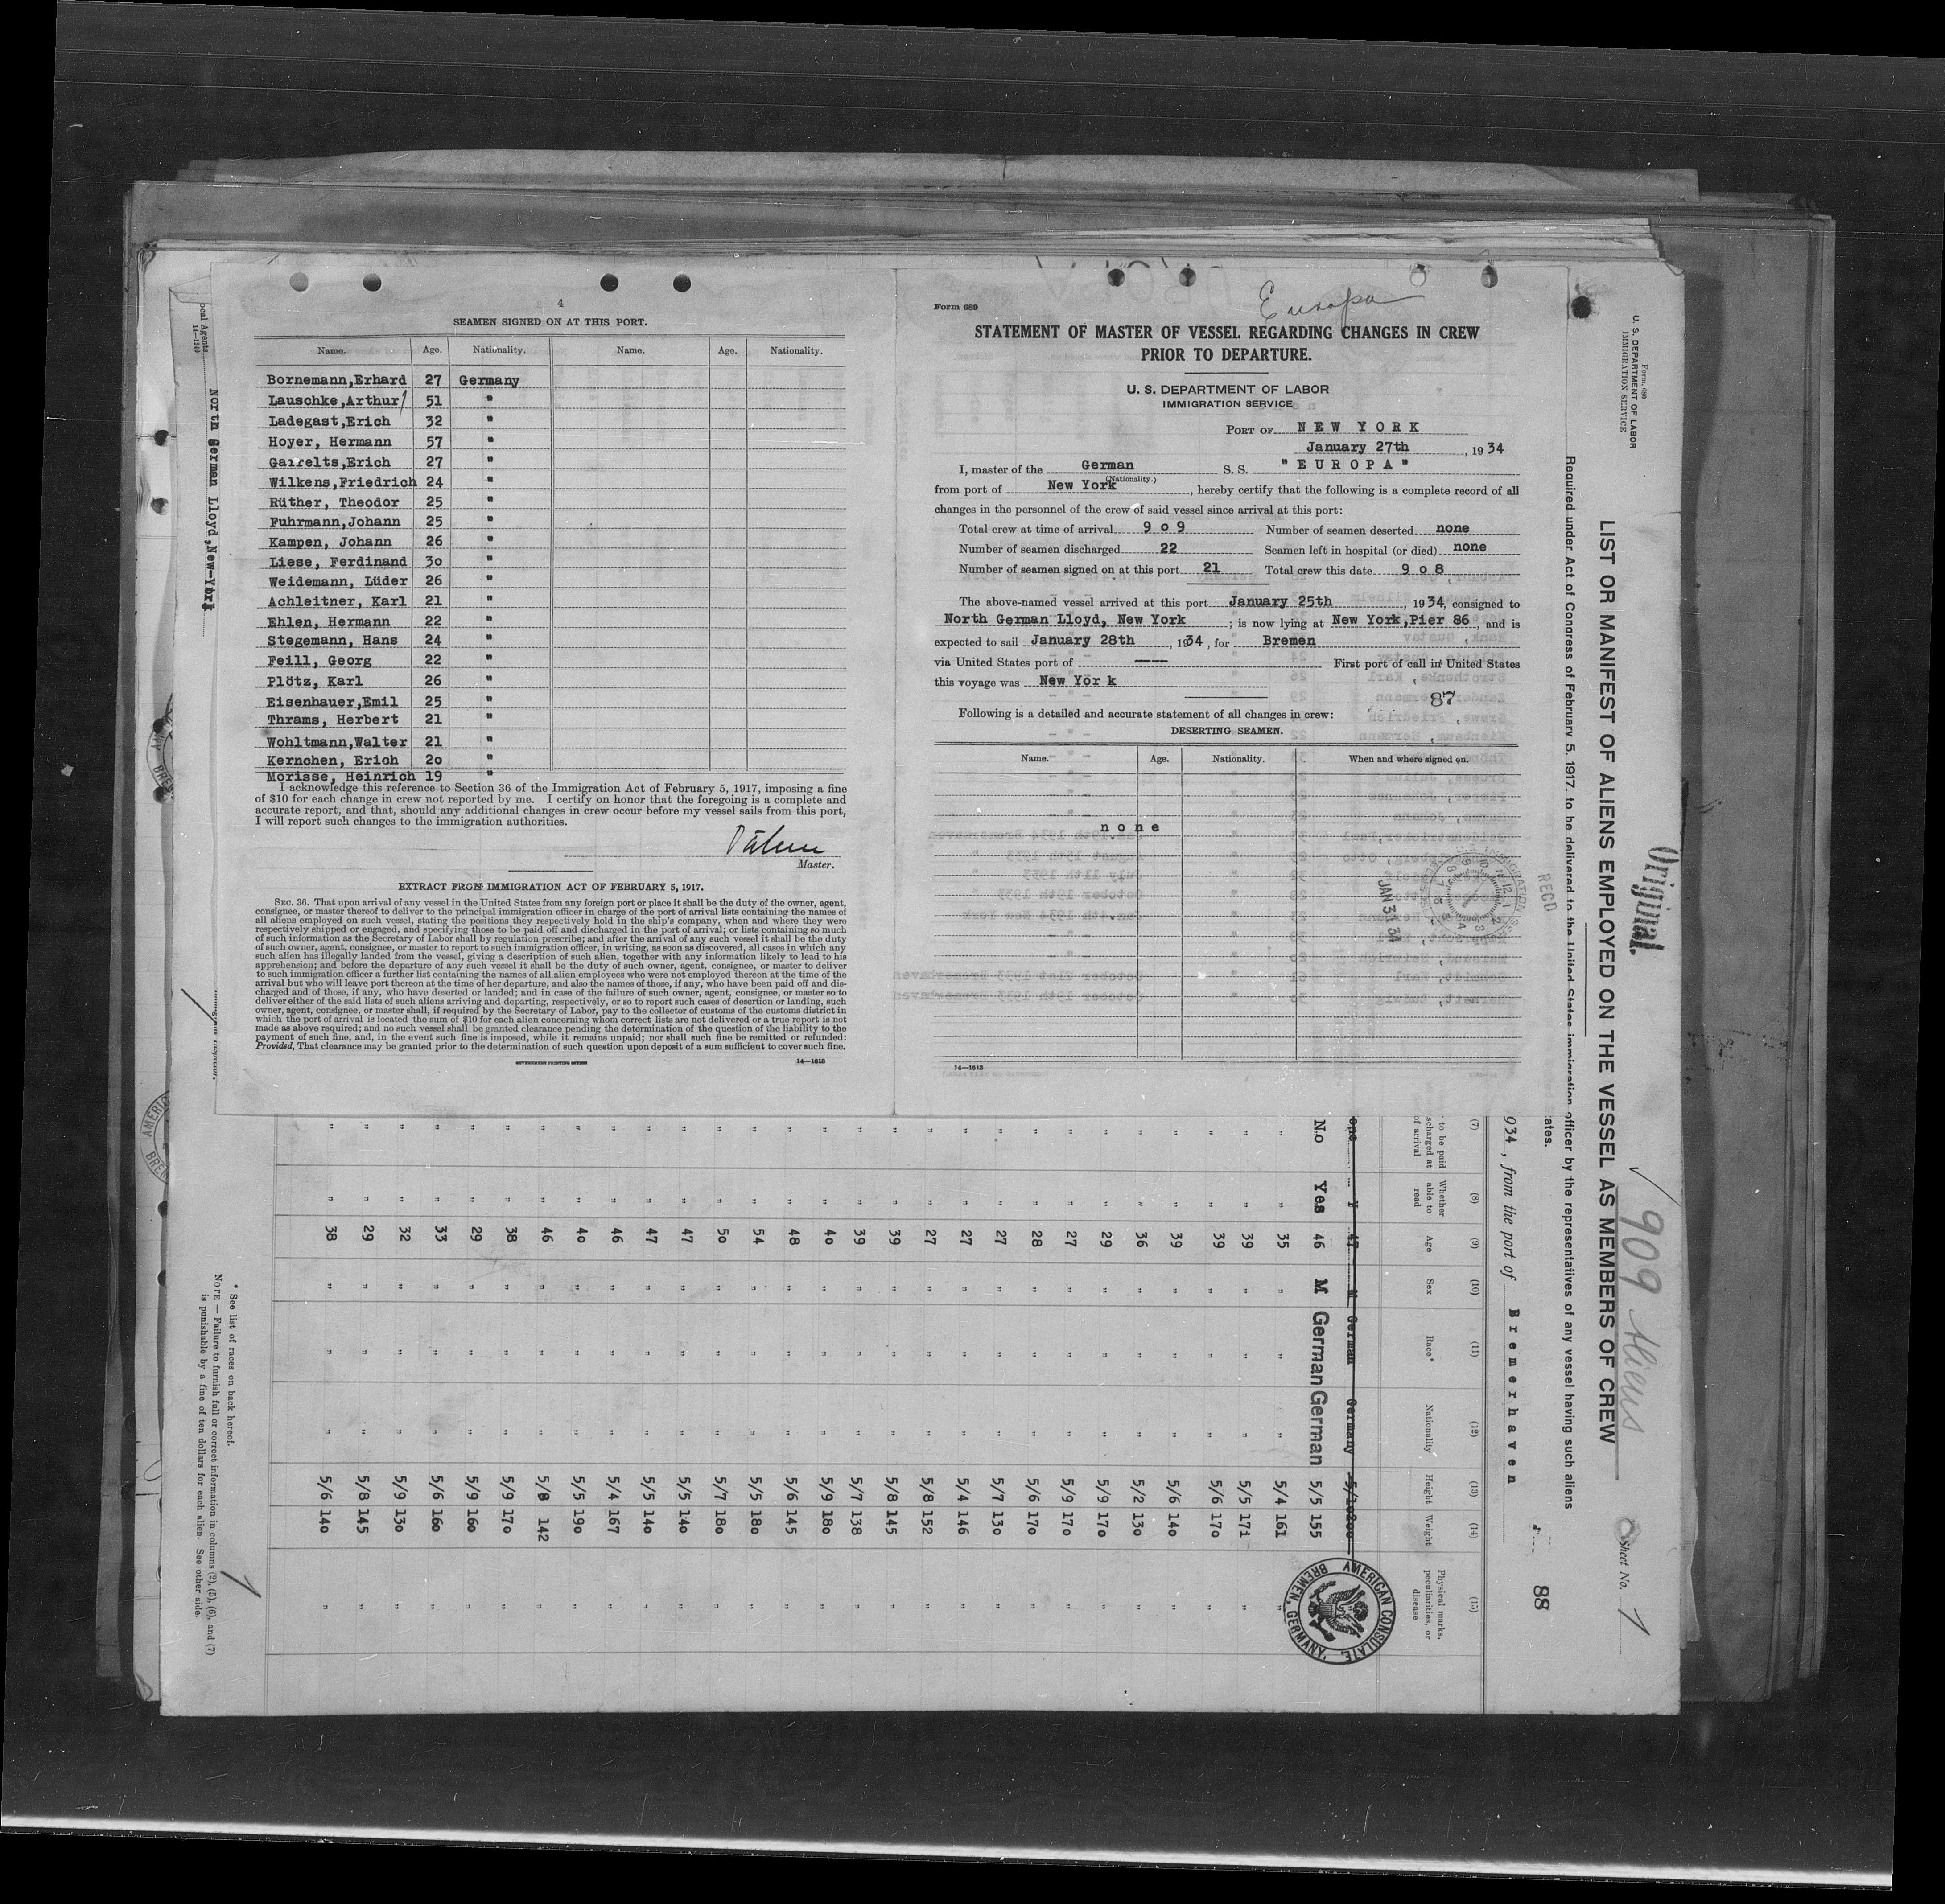 4
SEAMEN SIGNED ON AT THIS PORT.
Name. Age. Nationality. Name. Age. Nationality.
Bornemann,Erhard 27 Germany
Lauschke,Arthur 51 "
Ladegast,Erich 32 "
Hoyer, Hermann 57 "
Garrelts,Erich 27 "
Wilkens,Friedrich 24 "
Rüther, Theodor 25 "
Fuhrmann,Johann 25 "
Kampen, Johann 26 "
Liese, Ferdinand 3o "
Weidemann, Lüder 26 "
Achleitner, Karl 21 "
Ehlen, Hermann 22 "
Stegemann, Hans 24 "
Feill, Georg 22 "
Plötz, Karl 26 "
Eisenhauer,Emil 25 "
Thrams, Herbert 21 "
Wohltmann,Walter 21 "
Kernchen, Erich 2o "
Morisse, Heinrich 19 "
I acknowledge this reference to Section 36 of the Immigration Act of February 5, 1917, imposing a fine
of $10 for each change in crew not reported by me. I certify on honor that the foregoing is a complete and
accurate report, and that, should any additional changes in crew occur before my vessel sails from this port,
I will report such changes to the immigration authorities.
Master.
EXTRACT FROM IMMIGRATION ACT OF FEBRUARY 5, 1917.
SEC. 36. That upon arrival of any vessel in the United States from any foreign port or place it shall be the duty of the owner, agent,
consignee, or master thereof to deliver to the principal immigration officer in charge of the port of arrival lists containing the names of
all aliens employed on such vessel, stating the positions they respectively hold in the ship's company, when and where they were
respectively shipped or engaged, and specifying those to be paid off and discharged in the port of arrival; or lists containing so much
of such information as the Secretary of Labor shall by regulation prescribe; and after the arrival of any such vessel it shall be the duty
of such owner, agent, consignee, or master to report to such immigration officer, in writing, as soon as discovered, all cases in which any
such alien has illegally landed from the vessel, giving a description of such alien, together with any information likely to lead to his
apprehension; and before the departure of any such vessel it shall be the duty of such owner, agent, consignee, or master to deliver
to such immigration officer a further list containing the names of all alien employees who were not employed thereon at the time of the
arrival but who will leave port thereon at the time of her departure, and also the names of those, if any, who have been paid off and dis-
charged and of those, if any, who have deserted or landed; and in case of the failure of such owner, agent, consignee, or master so to
deliver either of the said lists of such aliens arriving and departing, respectively, or so to report such cases of desertion or landing, such
owner, agent, consignee, or master shall, if required by the Secretary of Labor, pay to the collector of customs of the customs district in
which the port of arrival is located the sum of $10 for each alien concerning whom correct lists are not delivered or a true report is not
made as above required; and no such vessel shall be granted clearance pending the determination of the question of the liability to the
payment of such fine, and, in the event such fine is imposed, while it remains unpaid; nor shall such fine be remitted or refunded:
Provided, That clearance may be granted prior to the determination of such question upon deposit of a sum sufficient to cover such fine.
GOVERNMENT PRINTING OFFICE 14—1613
Form 689
Europa
STATEMENT OF MASTER OF VESSEL REGARDING CHANGES IN CREW
PRIOR TO DEPARTURE.
U. S. DEPARTMENT OF LABOR
IMMIGRATION SERVICE
PORT OF NEW YORK
January 27th , 1934
I, master of the German S. S. "EUROPA"
(Nationality.)
from port of New York , hereby certify that the following is a complete record of all
changes in the personnel of the crew of said vessel since arrival at this port:
Total crew at time of arrival 9o9 Number of seamen deserted none
Number of seamen discharged 22 Seamen left in hospital (or died) none
Number of seamen signed on at this port 21 Total crew this date 9o8
The above-named vessel arrived at this port January 25th , 1934, consigned to
North German Lloyd, New York ; is now lying at New York,Pier 86 , and is
expected to sail January 28th , 1934 , for Bremen
via United States port of —— First port of call in United States
this voyage was New York
87
Following is a detailed and accurate statement of all changes in crew:
DESERTING SEAMEN.
Name. Age. Nationality. When and where signed on.
none
14—1613
RECD
JAN 31 34
ocal Agents
14—1240
North German Lloyd,New-York
Form 689
U. S. DEPARTMENT OF LABOR
IMMIGRATION SERVICE
Original.
909 Aliens
Sheet No. 1
LIST OR MANIFEST OF ALIENS EMPLOYED ON THE VESSEL AS MEMBERS OF CREW
Required under Act of Congress of February 5, 1917, to be delivered to the United States immigration officer by the representatives of any vessel having such aliens
ates.
88
934 , from the port of Bremerhaven
(7) (8) (9) (10) (11) (12) (13) (14) (15)
to be paid
scharged at
of arrival
Whether
able to
read
Age Sex Race* Nationality Height Weight
Physical marks,
peculiarities, or
disease
47 M German Germany 5/10 200
No Yes 46 M German German 5/5 155
" " 35 " " " 5/4 161 "
" " 39 " " " 5/5 171 "
" " 39 " " " 5/6 17o "
" " 39 " " " 5/6 14o "
" " 36 " " " 5/2 13o "
" " 29 " " " 5/9 17o "
" " 27 " " " 5/9 17o "
" " 28 " " " 5/6 17o "
" " 27 " " " 5/7 13o "
" " 27 " " " 5/4 146 "
" " 27 " " " 5/8 152 "
" " 39 " " " 5/8 145 "
" " 39 " " " 5/7 138 "
" " 4o " " " 5/9 18o "
" " 48 " " " 5/6 145 "
" " 54 " " " 5/5 18o "
" " 5o " " " 5/7 18o "
" " 47 " " " 5/5 14o "
" " 47 " " " 5/5 14o "
" " 46 " " " 5/4 167 "
" " 4o " " " 5/5 19o "
" " 46 " " " 5/8 142 "
" " 38 " " " 5/9 17o "
" " 29 " " " 5/9 16o "
" " 33 " " " 5/6 16o "
" " 32 " " " 5/9 13o "
" " 29 " " " 5/8 145 "
" " 38 " " " 5/6 14o "
AMERICAN CONSULATE.
BREMEN, GERMANY.
* See list of races on back hereof.
NOTE.—Failure to furnish full or correct information in columns (2), (5), (6), and (7)
is punishable by a fine of ten dollars for each alien. See other side.